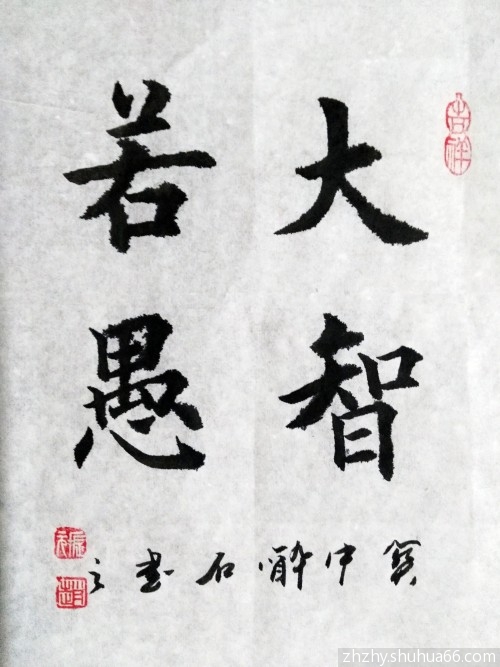 大智
若愚
吉祥
中醉石书之
zhzhyshuhua66.com